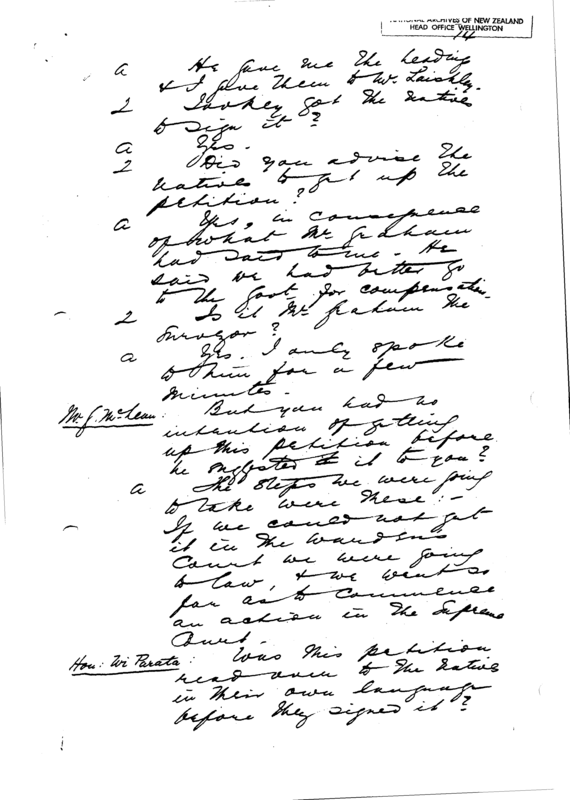 NATIONAL ARCHIVES OF NEW ZEALAND
HEAD OFFICE WELLINGTON
14
a He gave me the heading
& I gave them to Mr. Laishley.
2 Tookey got the natives
to sign it?
a Yes.
2 Did you advise the
natives to get up the
petition?
a Yes, in consequence
of what Mr. Graham
had said to me. He
said we had better go
to the Govt. for compensation.
2 Is it Mr Graham the
surveyor?
a Yes. I only spoke
to him for a few
minutes.
Mr. J. McLean: But you had no
intention of getting
up this petition before
he suggested it to you?
a The steps we were going
to take were these:-
If we could not get
it in the Wardens
Court we were going
to law, & we went so
far as to commence
an action in the Supreme
Court.
Hon: Wi Parata: Was this petition
read over to the natives
in their own language
before they signed it?